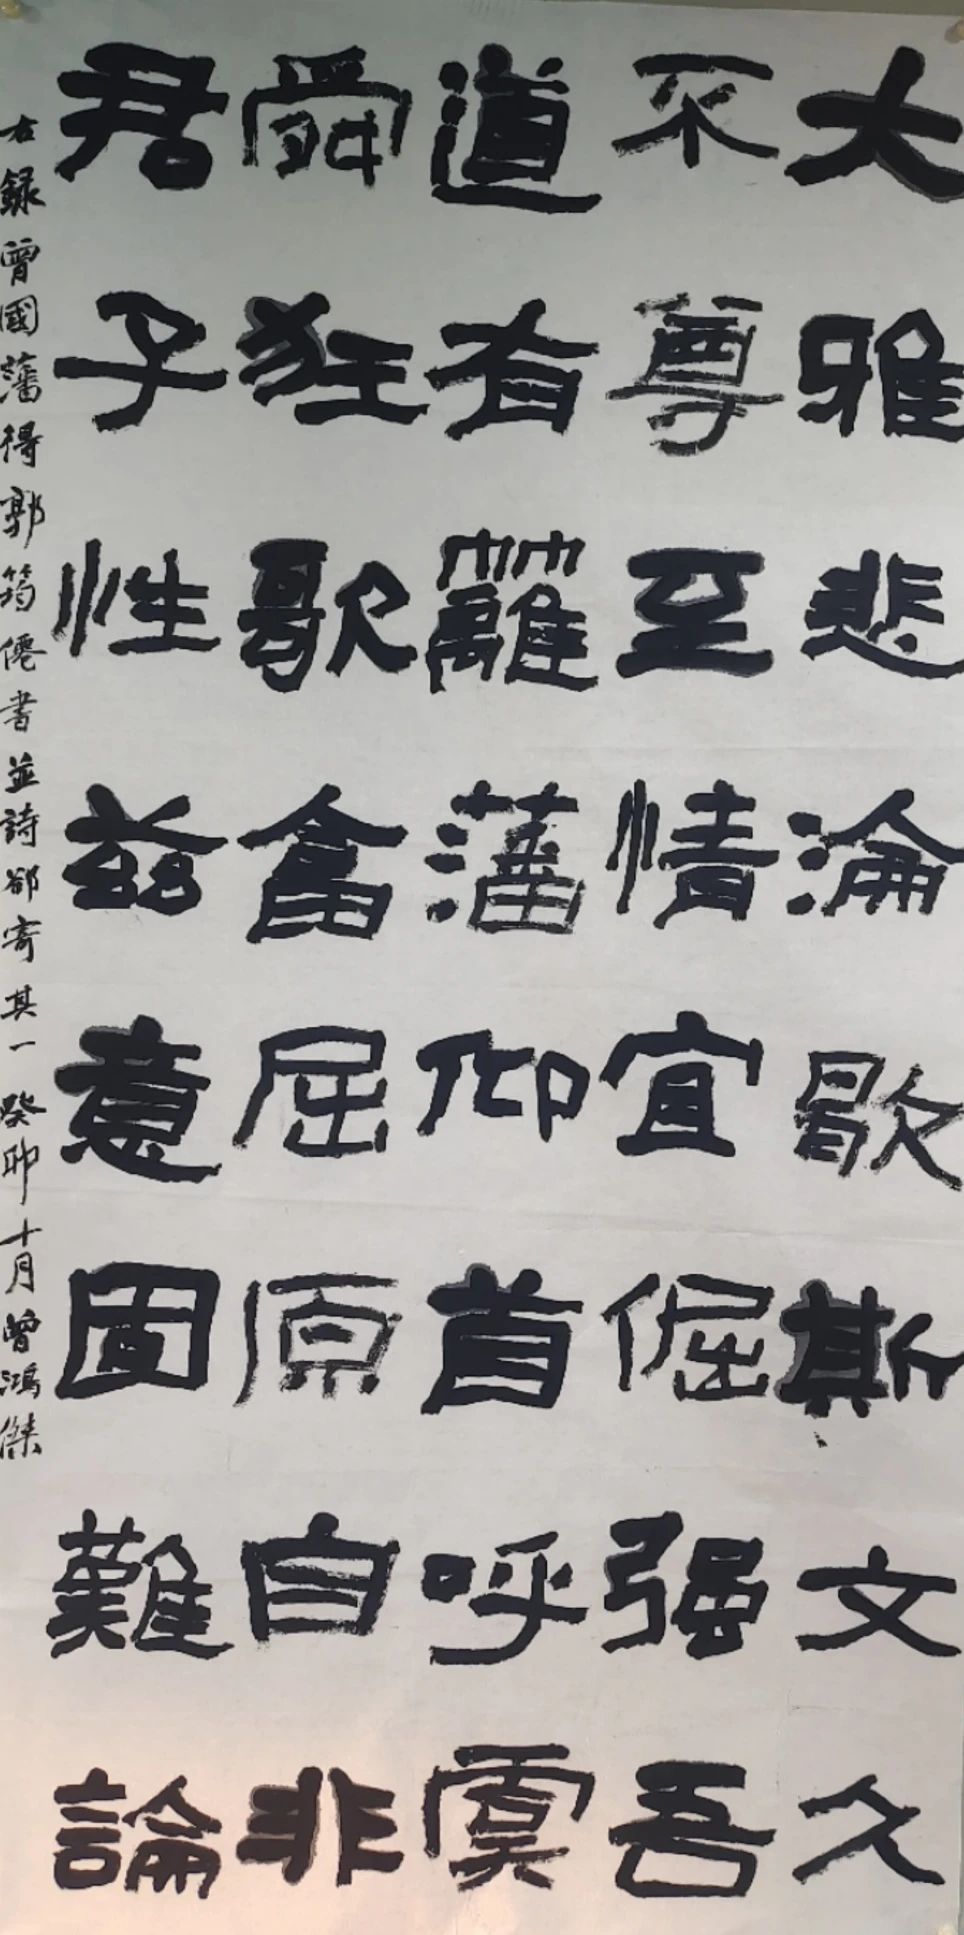 大雅悲淪歇斯文久
不尊至情宜倔强吾
道有籬藩仰首呼虞
舜狂歌奮屈原自非
君子性兹意固難論
右録曾國藩得郭筠僊書並詩郤寄其一 癸卯十月曾鴻傑